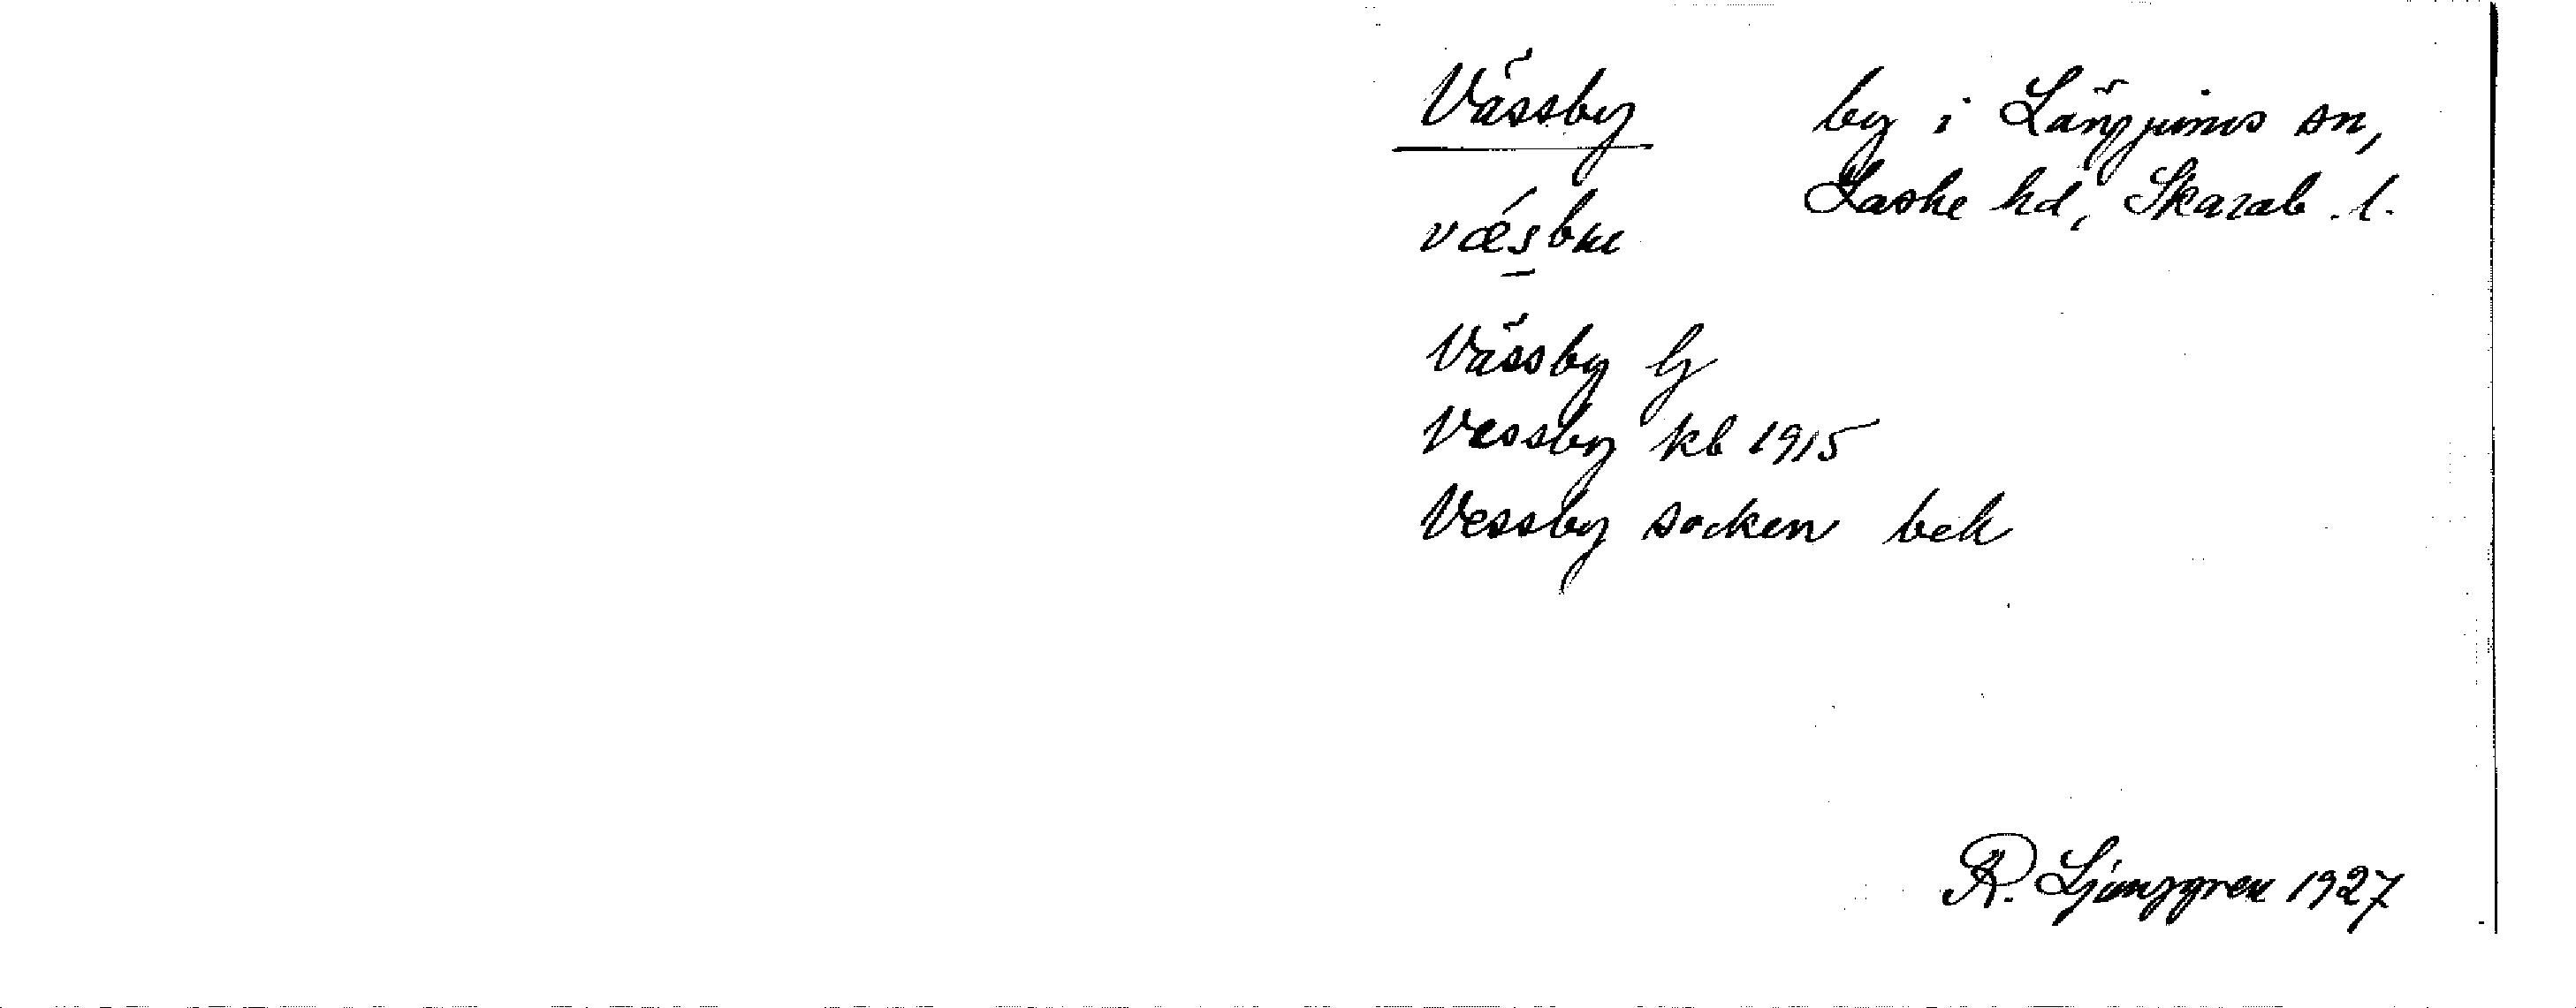 Vässby by i Längjums sn,
Laske hd, Skarab. l.
væsbu
Vässby Gj
Vessby kb 1915
Vessby socken bek
R. Ljunggren 1927